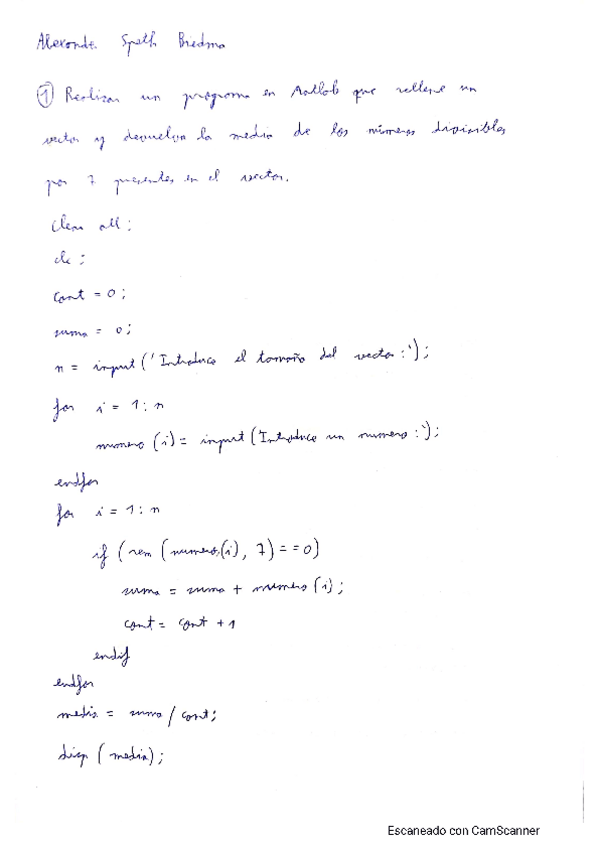 Alexander Speth Biedma
① Realizar un programa en Matlab que rellene un
vector y devuelva la media de los números divisibles
por 7 presentes en el vector.
clear all;
clc;
cont = 0;
suma = 0;
n = input('Introduce el tamaño del vector:');
for i = 1:n
numero (i) = input('Introduce un numero:');
endfor
for i = 1:n
if (rem (numero(i), 7) == 0)
suma = suma + numero (i);
cont = cont + 1
endif
endfor
media = suma / cont;
disp (media);
Escaneado con CamScanner